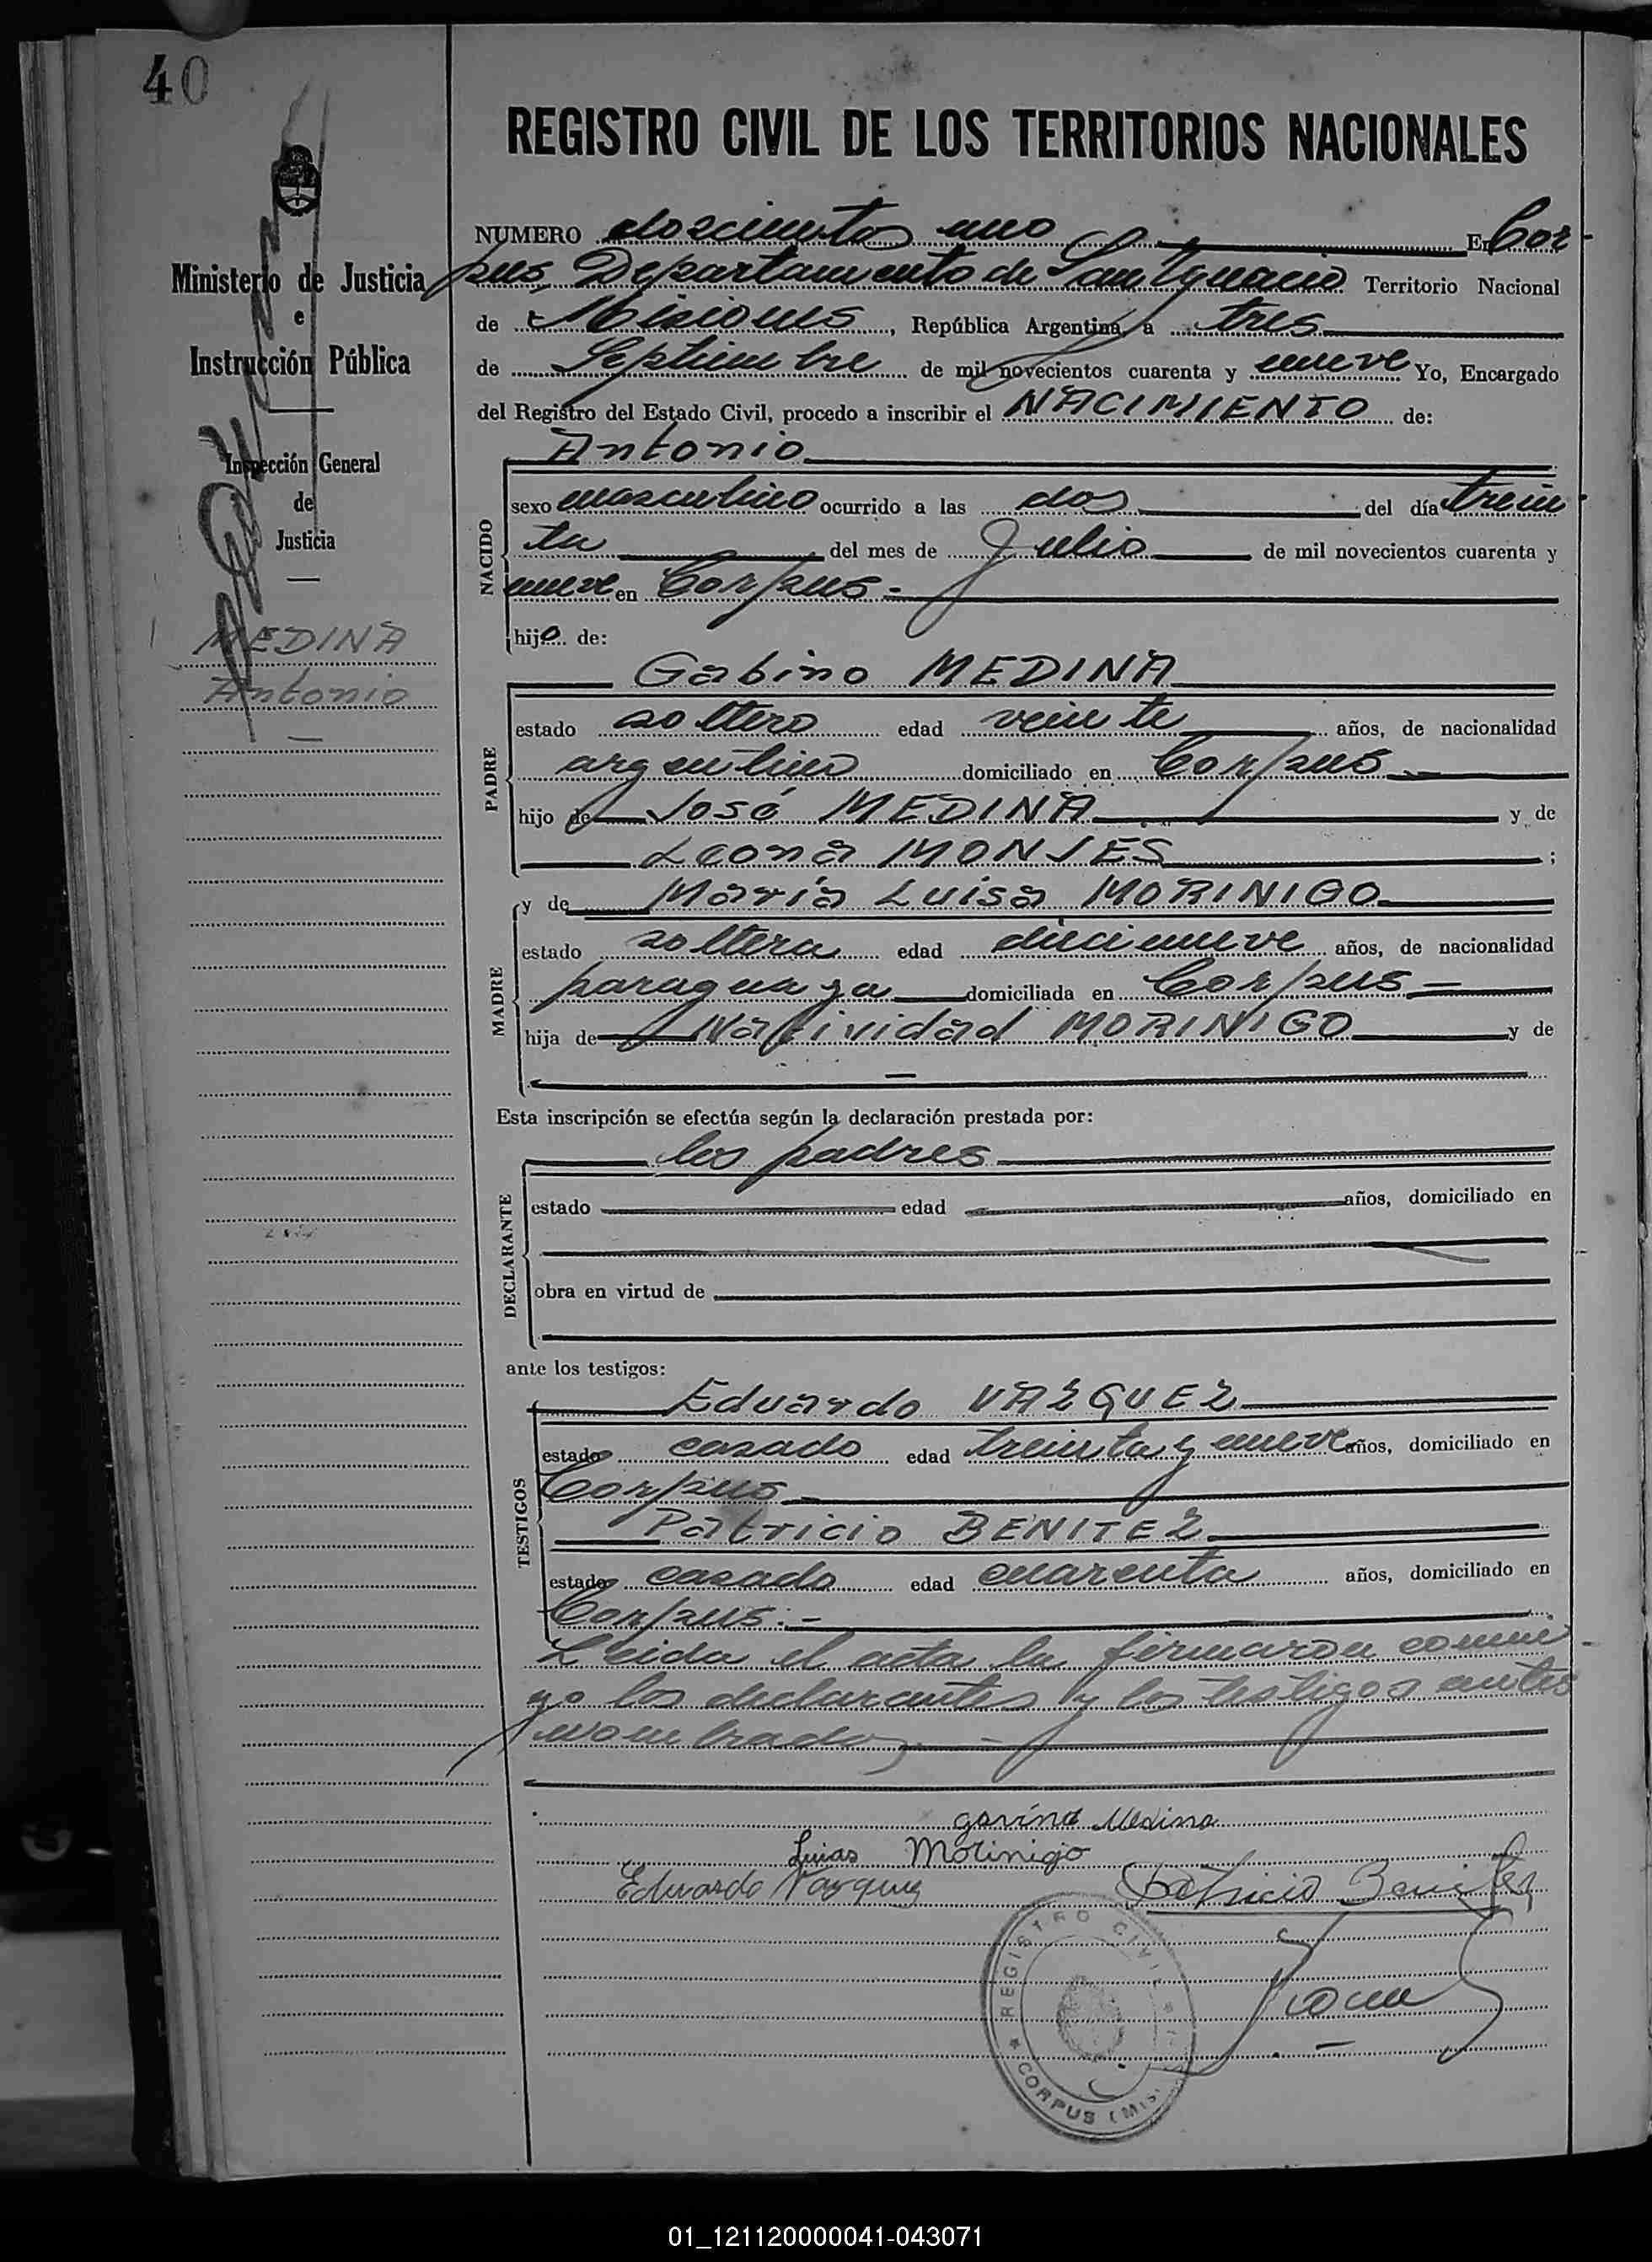 40
REGISTRO CIVIL DE LOS TERRITORIOS NACIONALES
Ministerio de Justicia
e
Instrucción Pública
Inspección General
de
Justicia
MEDINA
Antonio
NUMERO doscientos uno En Cor-
pus, Departamento de San Ignacio Territorio Nacional
de Misiones, República Argentina, a tres
de Septiembre de mil novecientos cuarenta y nueve Yo, Encargado
del Registro del Estado Civil, procedo a inscribir el NACIMIENTO de:
NACIDO
Antonio
sexo masculino ocurrido a las dos del día trein-
ta del mes de Julio de mil novecientos cuarenta y
nueve en Corpus.-
hijo de:
PADRE
Gabino MEDINA
estado soltero edad veinte años, de nacionalidad
argentino domiciliado en Corpus.-
hijo de José MEDINA y de
Leona MONJES ;
MADRE
y de María Luisa MORINIGO
estado soltera edad diecinueve años, de nacionalidad
paraguaya domiciliada en Corpus.-
hija de Natividad MORINIGO y de
Esta inscripción se efectúa según la declaración prestada por:
DECLARANTE
los padres
estado edad años, domiciliado en
obra en virtud de
ante los testigos:
TESTIGOS
Eduardo VAZQUEZ
estado casado edad treinta y nueve años, domiciliado en
Corpus.-
Patricio BENITEZ
estado casado edad cuarenta años, domiciliado en
Corpus.-
Leida el acta la firmaron conmi-
go los declarantes y los testigos antes
nombrados.-
gavino Medina
Luisa Morinigo
Eduardo Vazquez Patricio Benitez
REGISTRO CIVIL
CORPUS (MIS.
01_121120000041-043071